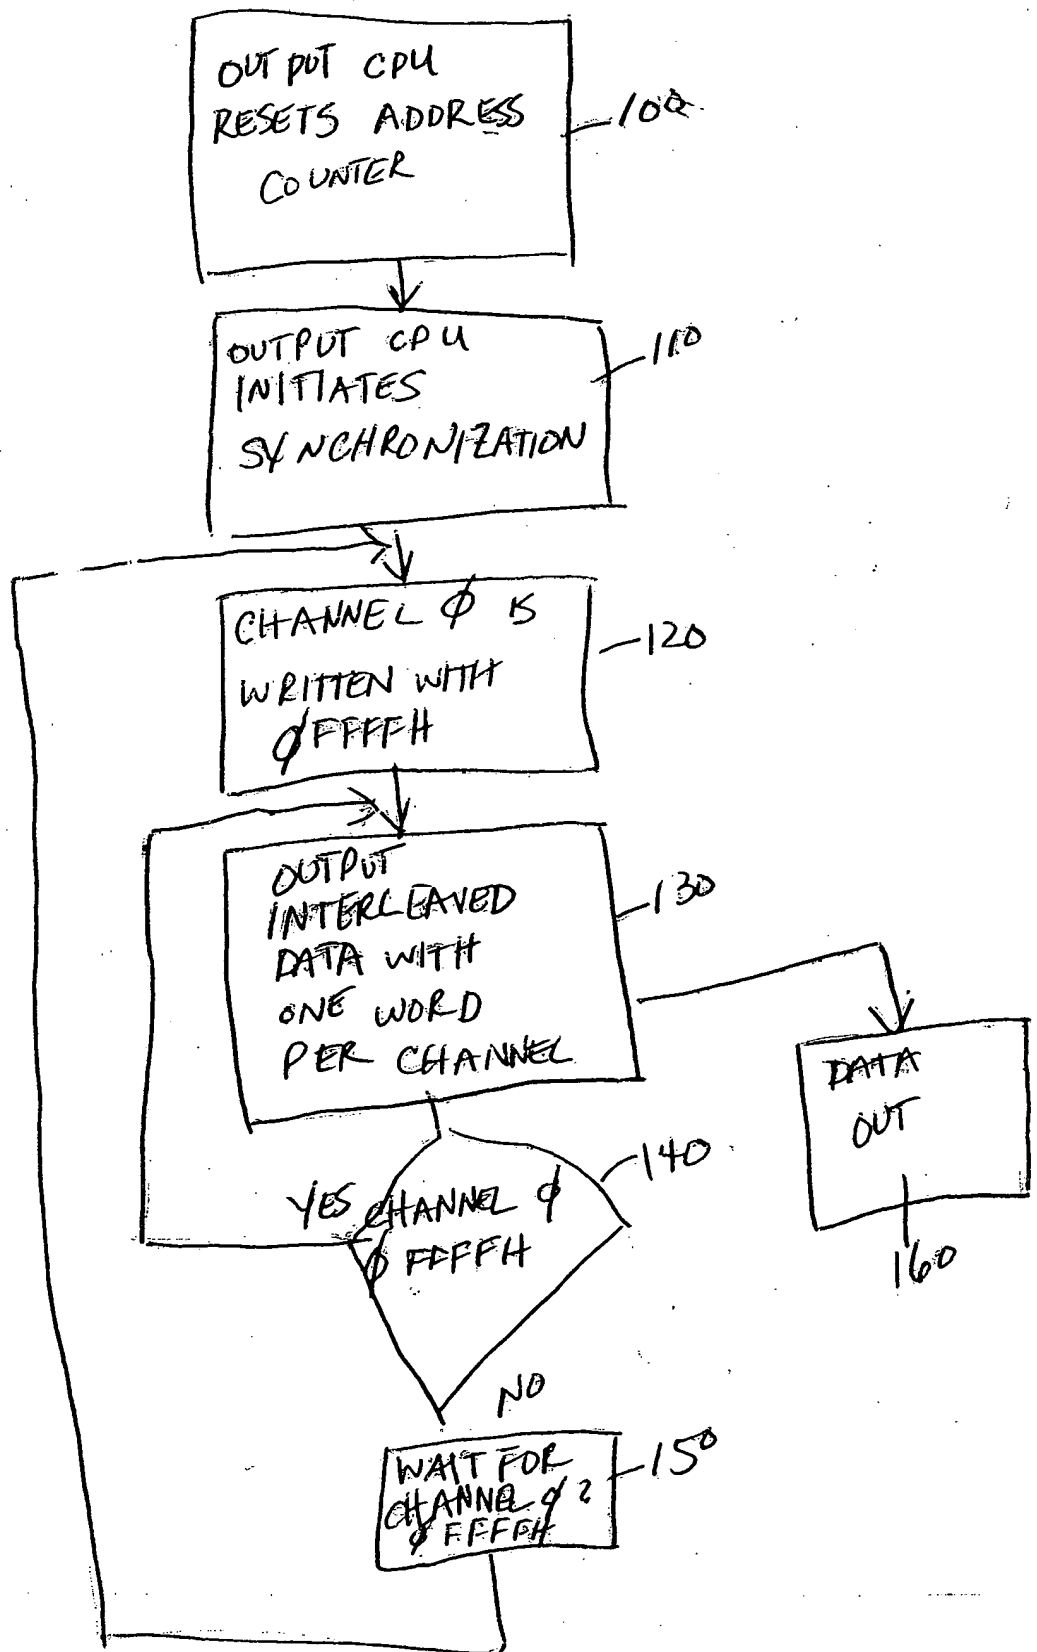 OUTPUT CPU
RESETS ADDRESS
COUNTER
100
OUTPUT CPU
INITIATES
SYNCHRONIZATION
110
CHANNEL Ø IS
WRITTEN WITH
ØFFFFH
120
OUTPUT
INTERLEAVED
DATA WITH
ONE WORD
PER CHANNEL
130
DATA
OUT
160
YES
CHANNEL Ø
ØFFFFH
140
NO
WAIT FOR
CHANNEL Ø ?
ØFFFFH
150